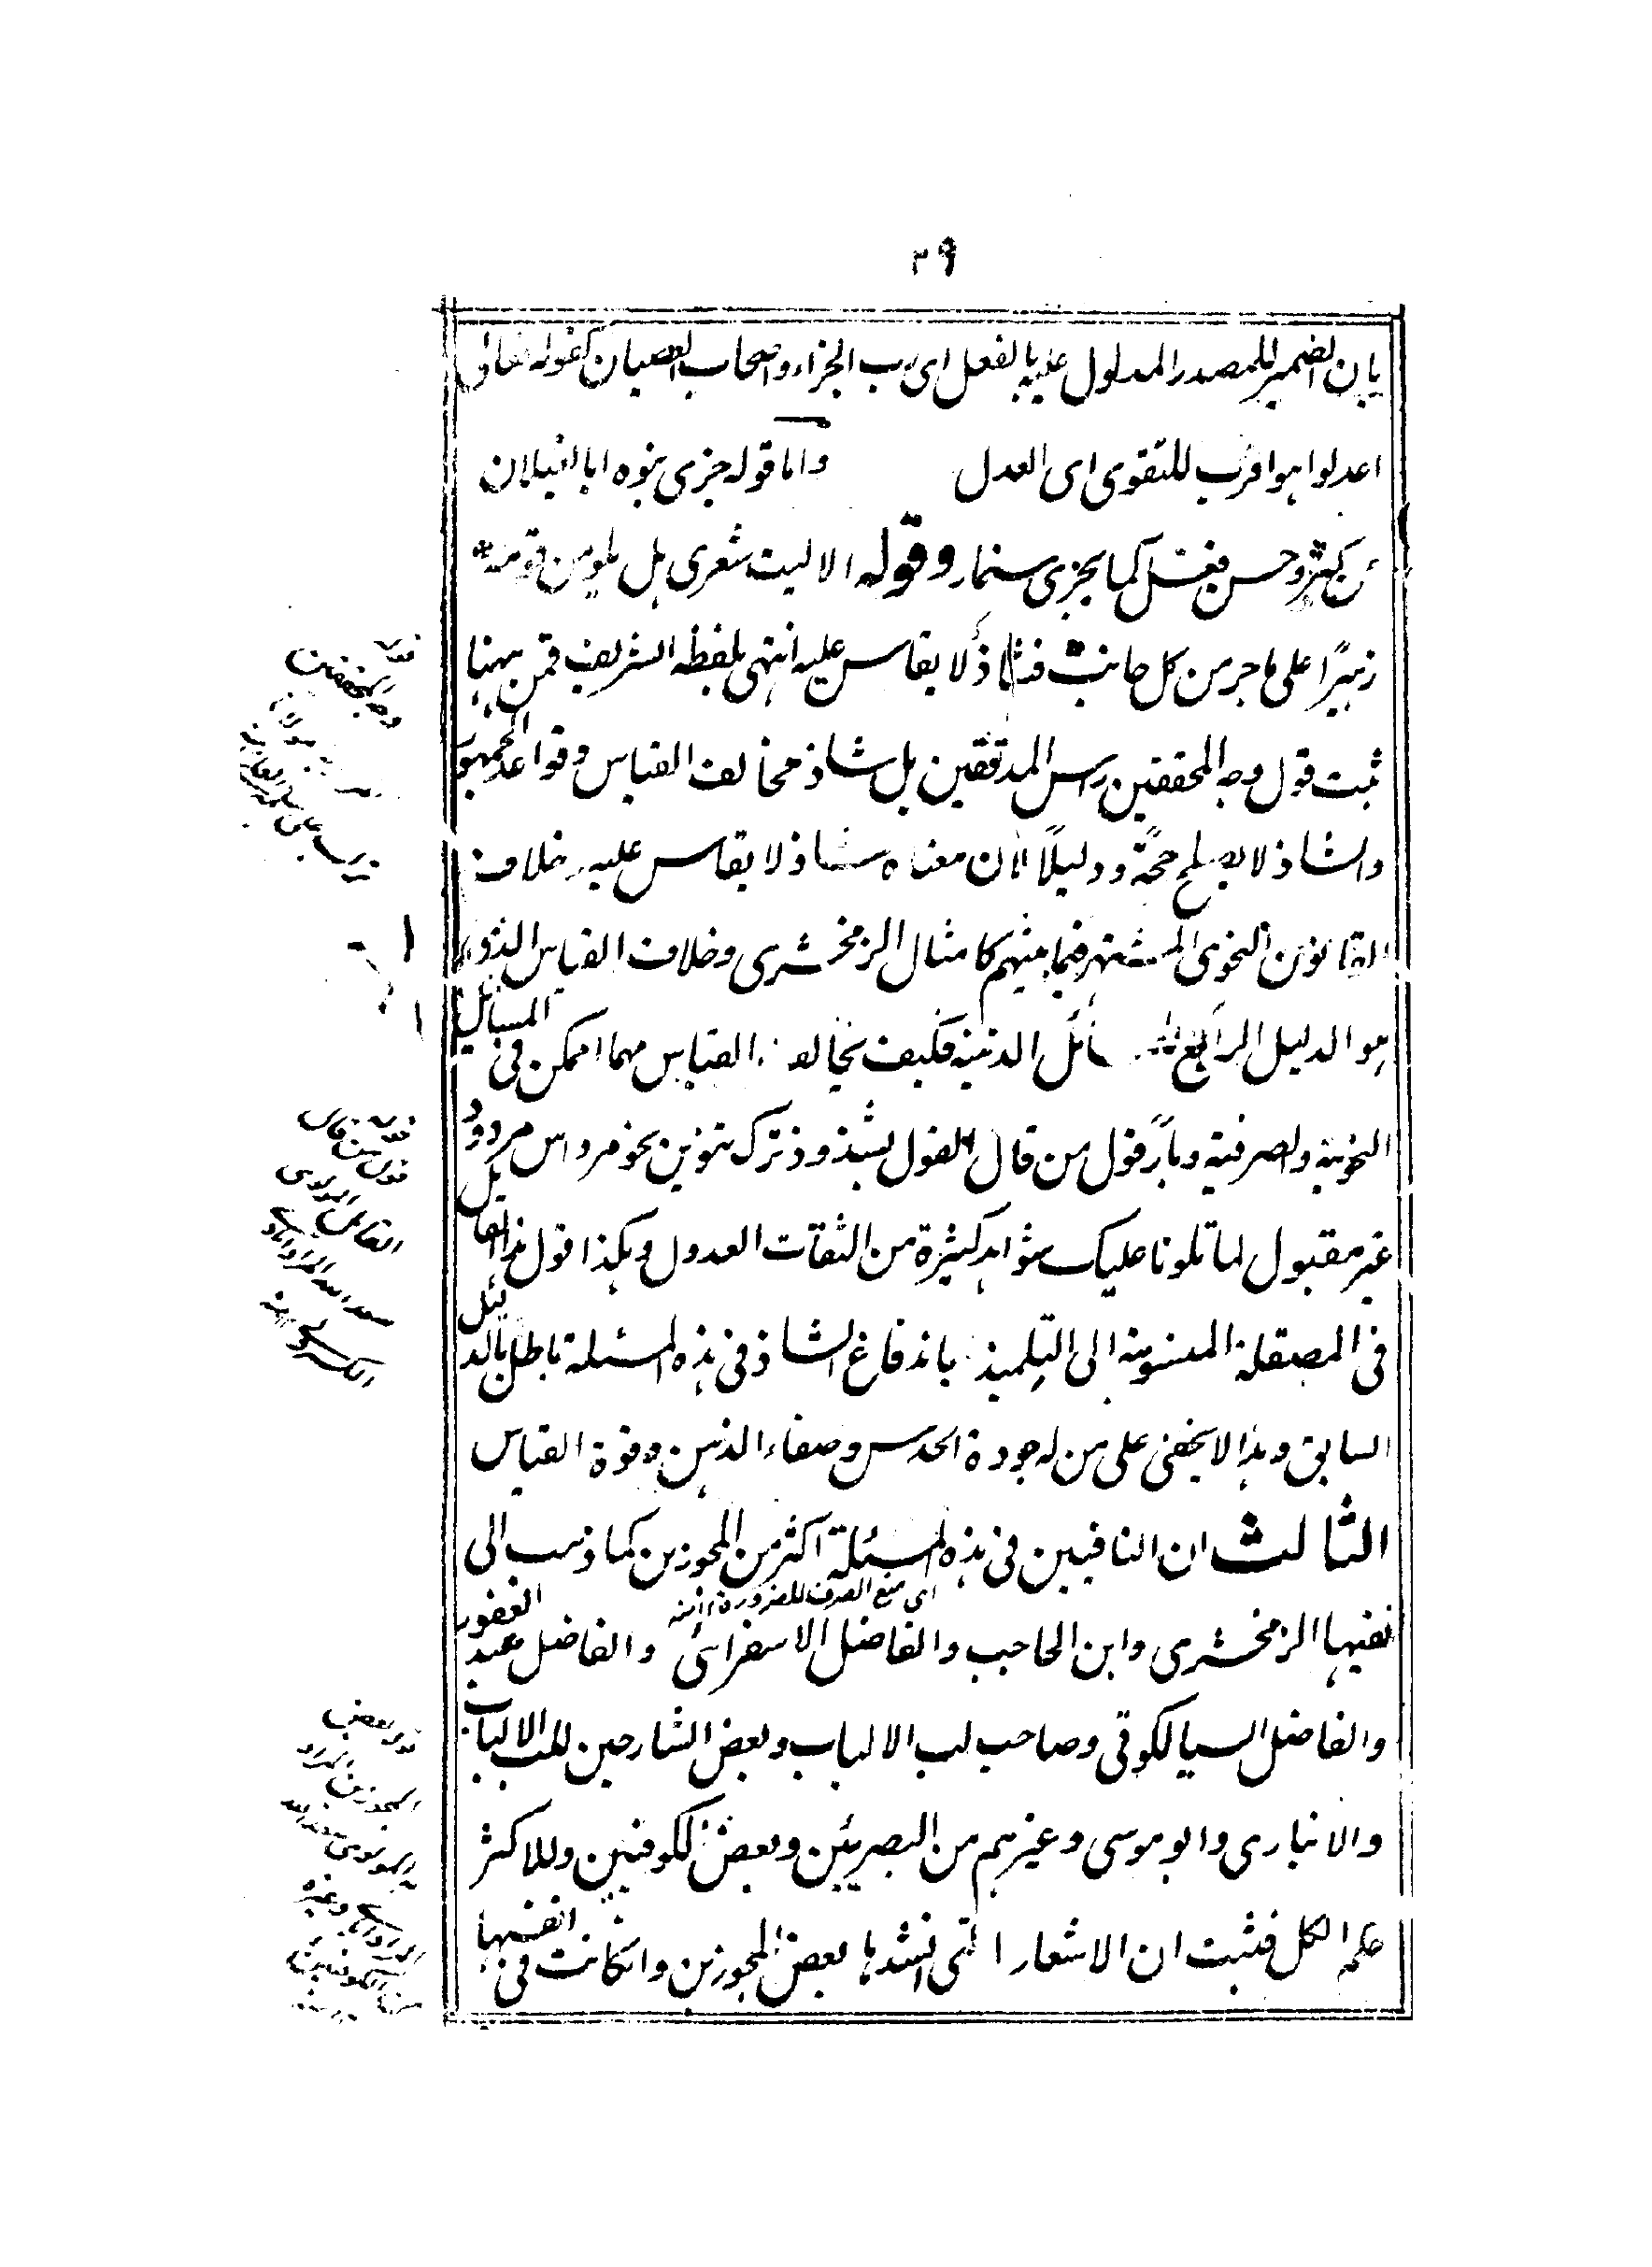 ٣٩
بان الضمير للمصدر المدلول عليه بالفعل اى رب الجزاء واصحاب العصيان كقوله تعالى
اعدلوا هو اقرب للتقوى اى العدل واما قوله جزى بنوه ابا الغيلان
عن كبر وحسن فعل كما يجزى سنمار وقوله الا ليت شعرى هل يلومن قومه
زهيرًا على ما جر من كل جانب فشاذ لا يقاس عليه انتهى بلفظه الشريف فمن ههنا
ثبت قول وجه المحققين راس المدققين بل شاذ مخالف القياس وقواعد الجمهور
والشاذ لا يصلح حجة ودليلاً لان معناه شاذ لا يقاس عليه خلاف
القانون النحوى المشتهر فيما بينهم كامثال الزمخشرى وخلاف القياس الذى
هو الدليل الرابع المسائل الدينية فكيف يخالف القياس مهما امكن فى المسائل
النحوية والصرفية وبان قول من قال القول بشذوذ ترك تنوين نحو مرداس مردود
غير مقبول لما تلونا عليك شواهد كثيرة من الثقات العدول وهكذا قول هذا القائل
فى المصقلة المنسوبة الى التلميذ باندفاع الشاذ فى هذه المسئلة باطل بالدليل
السابق وهذا لا يخفى على من له جودة الحدس وصفاء الذهن وقوة القياس
الثالث ان النافيين فى هذه المسئلة اكثر من المجوزين كما ذهب الى
اى منع الصرف للضرورة ١٢ منه
نفيها الزمخشرى وابن الحاجب والفاضل الاسفرائى والفاضل عبد الغفور
والفاضل السيالكوتى وصاحب لب الالباب وبعض الشارحين للب الالباب
والانبارى وابو موسى وغيرهم من البصريين وبعض الكوفيين وللاكثر
حكم الكل فثبت ان الاشعار التى انشدها بعض المجوزين وان كانت فى انفسها
قوله
وجه المحققين
قوله
قول من قال
القائل المولوى
سعد الله المرادابادى
قوله بعض
المجوزين المراد
المولوى سعد الله
المرادابادى وغيره
من الكوفيين